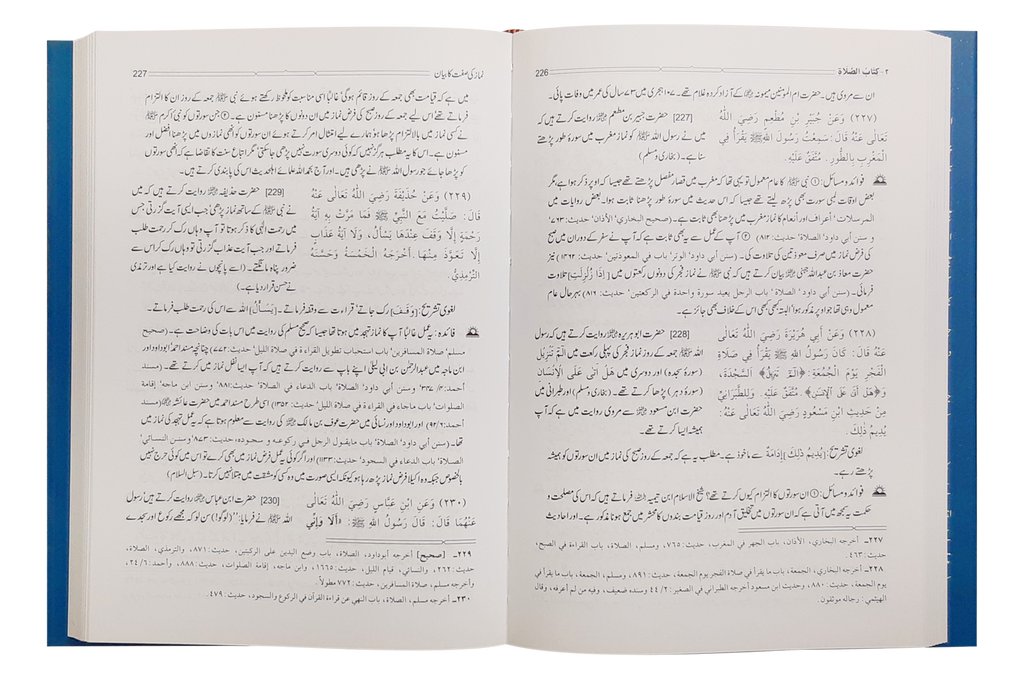 ٢- كتاب الصلاة 226
ان سے مروی ہیں۔ حضرت ام المؤمنین میمونہ ؓ کے آزاد کردہ غلام تھے۔ ۱۰۷ ہجری میں ۷۳ سال کی عمر میں وفات پائی۔
(٢٢٧) وَعَنْ جُبَيْرِ بْنِ مُطْعِمٍ رَضِيَ اللَّهُ
تَعَالَى عَنْهُ قَالَ: سَمِعْتُ رَسُولَ اللهِ ﷺ يَقْرَأُ فِي
الْمَغْرِبِ بِالطُّورِ. مُتَّفَقٌ عَلَيْهِ.
[227] حضرت جبیر بن مطعم ؓ روایت کرتے ہیں کہ
میں نے رسول اللہ ﷺ کو نماز مغرب میں سورۂ طور پڑھتے
سنا ہے۔ (بخاری و مسلم)
فوائد و مسائل: ① نبی ﷺ کا عام معمول تو یہی تھا کہ مغرب میں قصار مفصل پڑھتے تھے جیسا کہ اوپر ذکر ہوا ہے، مگر
بعض اوقات لمبی سورت بھی پڑھ لیتے تھے جیسا کہ اس حدیث میں سورۂ طور پڑھنا ثابت ہوا۔ بعض روایات میں
المرسلات، اعراف اور انعام کا نماز مغرب میں پڑھنا بھی ثابت ہے۔ (صحيح البخاري، الأذان، حديث: ۷۶۳
و سنن أبي داود، الصلاة، حديث: ۸۱۲) ② آپ کے عمل سے یہ بھی ثابت ہے کہ آپ نے سفر کے دوران میں صبح
کی فرض نماز میں صرف معوذتین کی تلاوت کی۔ (سنن أبي داود، الوتر، باب في المعوذتين، حديث: ۱۴۶۲) نیز
حضرت معاذ بن عبداللہ جہنی بیان کرتے ہیں کہ نبی ﷺ نے نماز فجر کی دونوں رکعتوں میں [إِذَا زُلْزِلَتِ] تلاوت
فرمائی۔ (سنن أبي داود، الصلاة، باب الرجل يعيد سورة واحدة في الركعتين، حديث: ۸۱۶) بہرحال عام
معمول وہی تھا جو اوپر مذکور ہوا البتہ کبھی کبھی اس کے خلاف بھی جائز ہے۔
(٢٢٨) وَعَنْ أَبِي هُرَيْرَةَ رَضِيَ اللَّهُ تَعَالَى
عَنْهُ قَالَ: كَانَ رَسُولُ اللهِ ﷺ يَقْرَأُ فِي صَلَاةِ
الْفَجْرِ يَوْمَ الْجُمُعَةِ: ﴿الٓمٓ تَنْزِيلُ﴾ السَّجْدَةَ،
وَ﴿هَلْ أَتَىٰ عَلَى الْإِنْسَٰنِ﴾. مُتَّفَقٌ عَلَيْهِ. وَلِلطَّبَرَانِيِّ
مِنْ حَدِيثِ ابْنِ مَسْعُودٍ رَضِيَ اللَّهُ تَعَالَى عَنْهُ:
يُدِيمُ ذٰلِكَ.
[228] حضرت ابو ہریرہ ؓ روایت کرتے ہیں کہ رسول
اللہ ﷺ جمعہ کے روز نماز فجر کی پہلی رکعت میں الٓمٓ تَنْزِيْلُ
(سورۂ سجدہ) اور دوسری میں هَلْ أَتٰى عَلَى الْإِنْسَانِ
(سورۂ دہر) پڑھا کرتے تھے۔ (بخاری و مسلم) اور طبرانی میں
حضرت ابن مسعود ؓ سے مروی روایت میں ہے کہ آپ
ہمیشہ ایسا کرتے تھے۔
لغوی تشریح: [يُدِيمُ ذٰلِكَ] إِدَامَةٌ سے ماخوذ ہے۔ مطلب یہ ہے کہ جمعہ کے روز صبح کی نماز میں ان سورتوں کو ہمیشہ
پڑھتے رہے۔
فوائد و مسائل: ① ان سورتوں کا التزام کیوں کرتے تھے؟ شیخ الاسلام ابن تیمیہ ؒ فرماتے ہیں کہ اس کی مصلحت و
حکمت یہ سمجھ میں آتی ہے کہ ان سورتوں میں تخلیق آدم اور روز قیامت بندوں کا محشر میں جمع ہونا مذکور ہے۔ اور احادیث
٢٢٧ـ أخرجه البخاري، الأذان، باب الجهر في المغرب، حديث: ٧٦٥، ومسلم، الصلاة، باب القراءة في الصبح،
حديث: ٤٦٣.
٢٢٨ـ أخرجه البخاري، الجمعة، باب ما يقرأ في صلاة الفجر يوم الجمعة، حديث: ٨٩١، ومسلم، الجمعة، باب ما يقرأ في
يوم الجمعة، حديث: ٨٨٠، وحديث ابن مسعود أخرجه الطبراني في الصغير: ٢/ ٤٤ وسنده ضعيف، وفيه من لم أعرفه، وقال
الهيثمي: رجاله موثقون.
نماز کی صفت کا بیان 227
میں ہے کہ قیامت بھی جمعہ کے روز قائم ہوگی، غالباً اسی مناسبت کو ملحوظ رکھتے ہوئے نبی ﷺ جمعہ کے روز ان کا التزام
فرماتے تھے، اس لیے جمعہ کے روز صبح کی فرض نماز میں ان دونوں کا پڑھنا مسنون ہے۔ ② جن سورتوں کو نبی اکرم ﷺ
نے کسی نماز میں بالالتزام پڑھا ہو، ہمارے لیے امتثال امر کرتے ہوئے ان سورتوں کو انھی نمازوں میں پڑھنا افضل اور
مسنون ہے۔ اس کا یہ مطلب ہرگز نہیں کہ کوئی دوسری سورت نہیں پڑھی جاسکتی، مگر اتباع سنت کا تقاضا ہے کہ انھی سورتوں
کو پڑھا جائے جو رسول اللہ ﷺ نے پڑھی ہیں۔ اور آج بحمد اللہ علمائے اہلحدیث اس کی پابندی کرتے ہیں۔
(٢٢٩) وَعَنْ حُذَيْفَةَ رَضِيَ اللَّهُ تَعَالَى عَنْهُ
قَالَ: صَلَّيْتُ مَعَ النَّبِيِّ ﷺ فَمَا مَرَّتْ بِهِ آيَةُ
رَحْمَةٍ إِلَّا وَقَفَ عِنْدَهَا يَسْأَلُ، وَلَا آيَةُ عَذَابٍ
إِلَّا تَعَوَّذَ مِنْهَا. أَخْرَجَهُ الْخَمْسَةُ وَحَسَّنَهُ
التِّرْمِذِيُّ.
[229] حضرت حذیفہ ؓ روایت کرتے ہیں کہ میں
نے نبی ﷺ کے ساتھ نماز پڑھی، جب ایسی آیت گزرتی جس
میں رحمت الٰہی کا ذکر ہوتا تو آپ وہاں رک کر رحمت طلب
فرماتے اور جب آیت عذاب گزرتی تو وہاں رک کر اس سے
ضرور پناہ مانگتے۔ (اسے پانچوں نے روایت کیا ہے اور ترمذی
نے حسن قرار دیا ہے۔)
لغوی تشریح: [وَقَفَ] رک جاتے، قراءت سے وقفہ فرماتے۔ [يَسْأَلُ] اللہ سے اس کی رحمت طلب فرماتے۔
فائدہ: یہ عمل غالباً آپ کا نماز تہجد میں ہوتا تھا جیسا کہ صحیح مسلم کی روایت میں اس بات کی وضاحت ہے۔ (صحيح
مسلم، صلاة المسافرين، باب استحباب تطويل القراءة في صلاة الليل، حديث: ۷۷۲) چنانچہ مسند احمد، ابوداود اور
ابن ماجہ میں عبدالرحمٰن بن ابی لیلیٰ اپنے باپ سے روایت کرتے ہیں کہ آپ ایسا نفل نماز میں کرتے تھے۔ (مسند
أحمد: ۴/ ۳۴۷ و سنن أبي داود، الصلاة، باب الدعاء في الصلاة، حديث: ۸۸۱، وسنن ابن ماجه، إقامة
الصلوات، باب ماجاء في القراءة في صلاة الليل، حديث: ۱۳۵۲) اسی طرح مسند احمد میں حضرت عائشہ ؓ (مسند
أحمد: ۶/ ۹۲) اور ابوداود اور نسائی میں حضرت عوف بن مالک ؓ کی روایت سے معلوم ہوتا ہے کہ یہ عمل تہجد کی نماز میں
تھا۔ (سنن أبي داود، الصلاة، باب مايقول الرجل في ركوعه و سجوده، حديث: ۸۷۳، وسنن النسائي،
الصلاة، باب الدعاء في السجود، حديث: ۱۱۳۳) اور اگر کوئی یہ عمل فرض نماز میں بھی کرے تو اس میں کوئی حرج نہیں
بالخصوص جبکہ وہ اکیلا فرض نماز پڑھ رہا ہو کیونکہ ایسی صورت میں وہ کسی کو مشقت میں مبتلا نہیں کرتا۔ (سبل السلام)
(٢٣٠) وَعَنِ ابْنِ عَبَّاسٍ رَضِيَ اللَّهُ تَعَالَى
عَنْهُمَا قَالَ: قَالَ رَسُولُ اللهِ ﷺ: «أَلَا وَإِنِّي
[230] حضرت ابن عباس ؓ روایت کرتے ہیں، رسول
اللہ ﷺ نے فرمایا: ”(لوگو!) سن لو کہ مجھے رکوع اور سجدے
٢٢٩ـ [صحيح] أخرجه أبوداود، الصلاة، باب وضع اليدين على الركبتين، حديث: ٨٧١، والترمذي، الصلاة،
حديث: ٢٦٢، والنسائي، قيام الليل، حديث: ١٦٦٥، وابن ماجه، إقامة الصلوات، حديث: ٨٨٨، وأحمد: ٦/ ٢٤،
وأخرجه مسلم، صلاة المسافرين، حديث: ٧٧٢ مطولاً.
٢٣٠ـ أخرجه مسلم، الصلاة، باب النهي عن قراءة القرآن في الركوع والسجود، حديث: ٤٧٩.